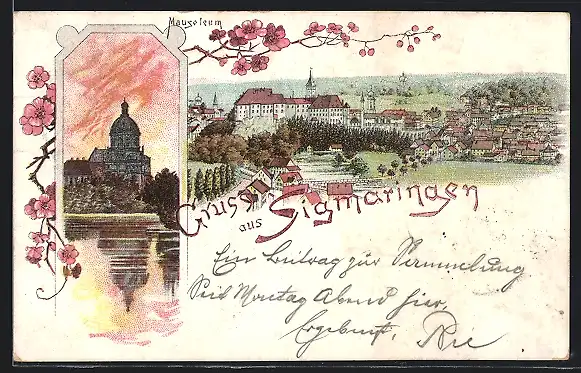 Mausoleum
Gruss
aus
Sigmaringen
Ein Beitrag zur Sammlung
Seit Montag Abend hier,
Ergebenst,